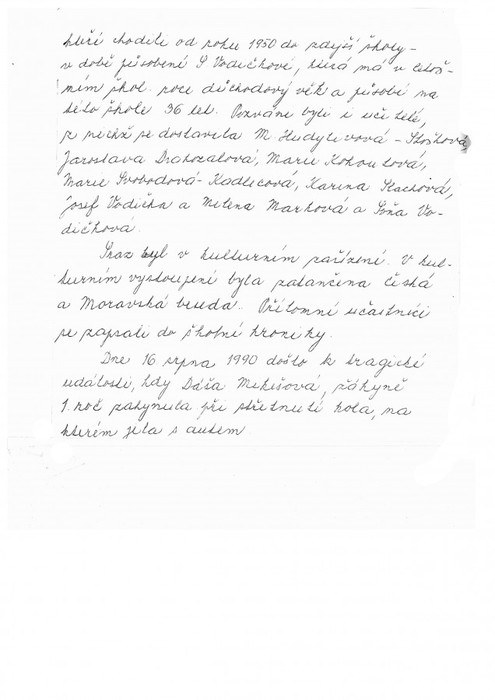 kteří chodili od roku 1950 do zdejší školy -
v době působení S Vodičkové, která má v letoš-
ním škol. roce důchodový věk a působí na
této škole 36 let. Pozváni byli i učitelé,
z nichž se dostavila M. Hudylivová - Stošková
Jaroslava Drahozalová, Marie Kohoutová,
Marie Svobodová - Kadlecová, Karina Stachová,
Josef Vodička a Milena Marková a Soňa Vo-
dičková.
Sraz byl v kulturním zařízení. V kul-
turním vystoupení byla zatančena česká
a Moravská beseda. Přítomní učastníci
se zapsali do školní kroniky.
Dne 16 srpna 1990 došlo k tragické
události, kdy Dáša Mikišová, žákyně
1. roč zahynula při střetnutí kola, na
kterém jela s autem